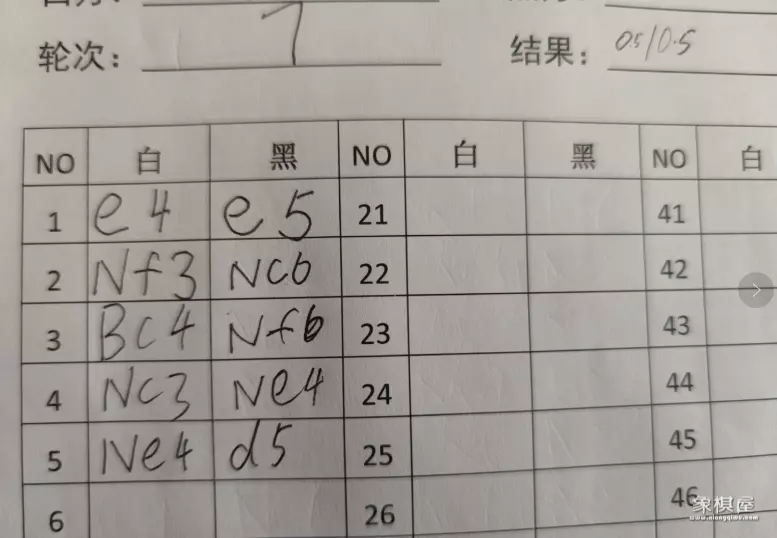 轮次： 7 结果： 0.5/0.5
NO 白 黑 NO 白 黑 NO 白
1 e4 e5 21 41
2 Nf3 Nc6 22 42
3 Bc4 Nf6 23 43
4 Nc3 Ne4 24 44
5 Ne4 d5 25 45
6 26 46
象棋屋
www.xiangqiwu.com